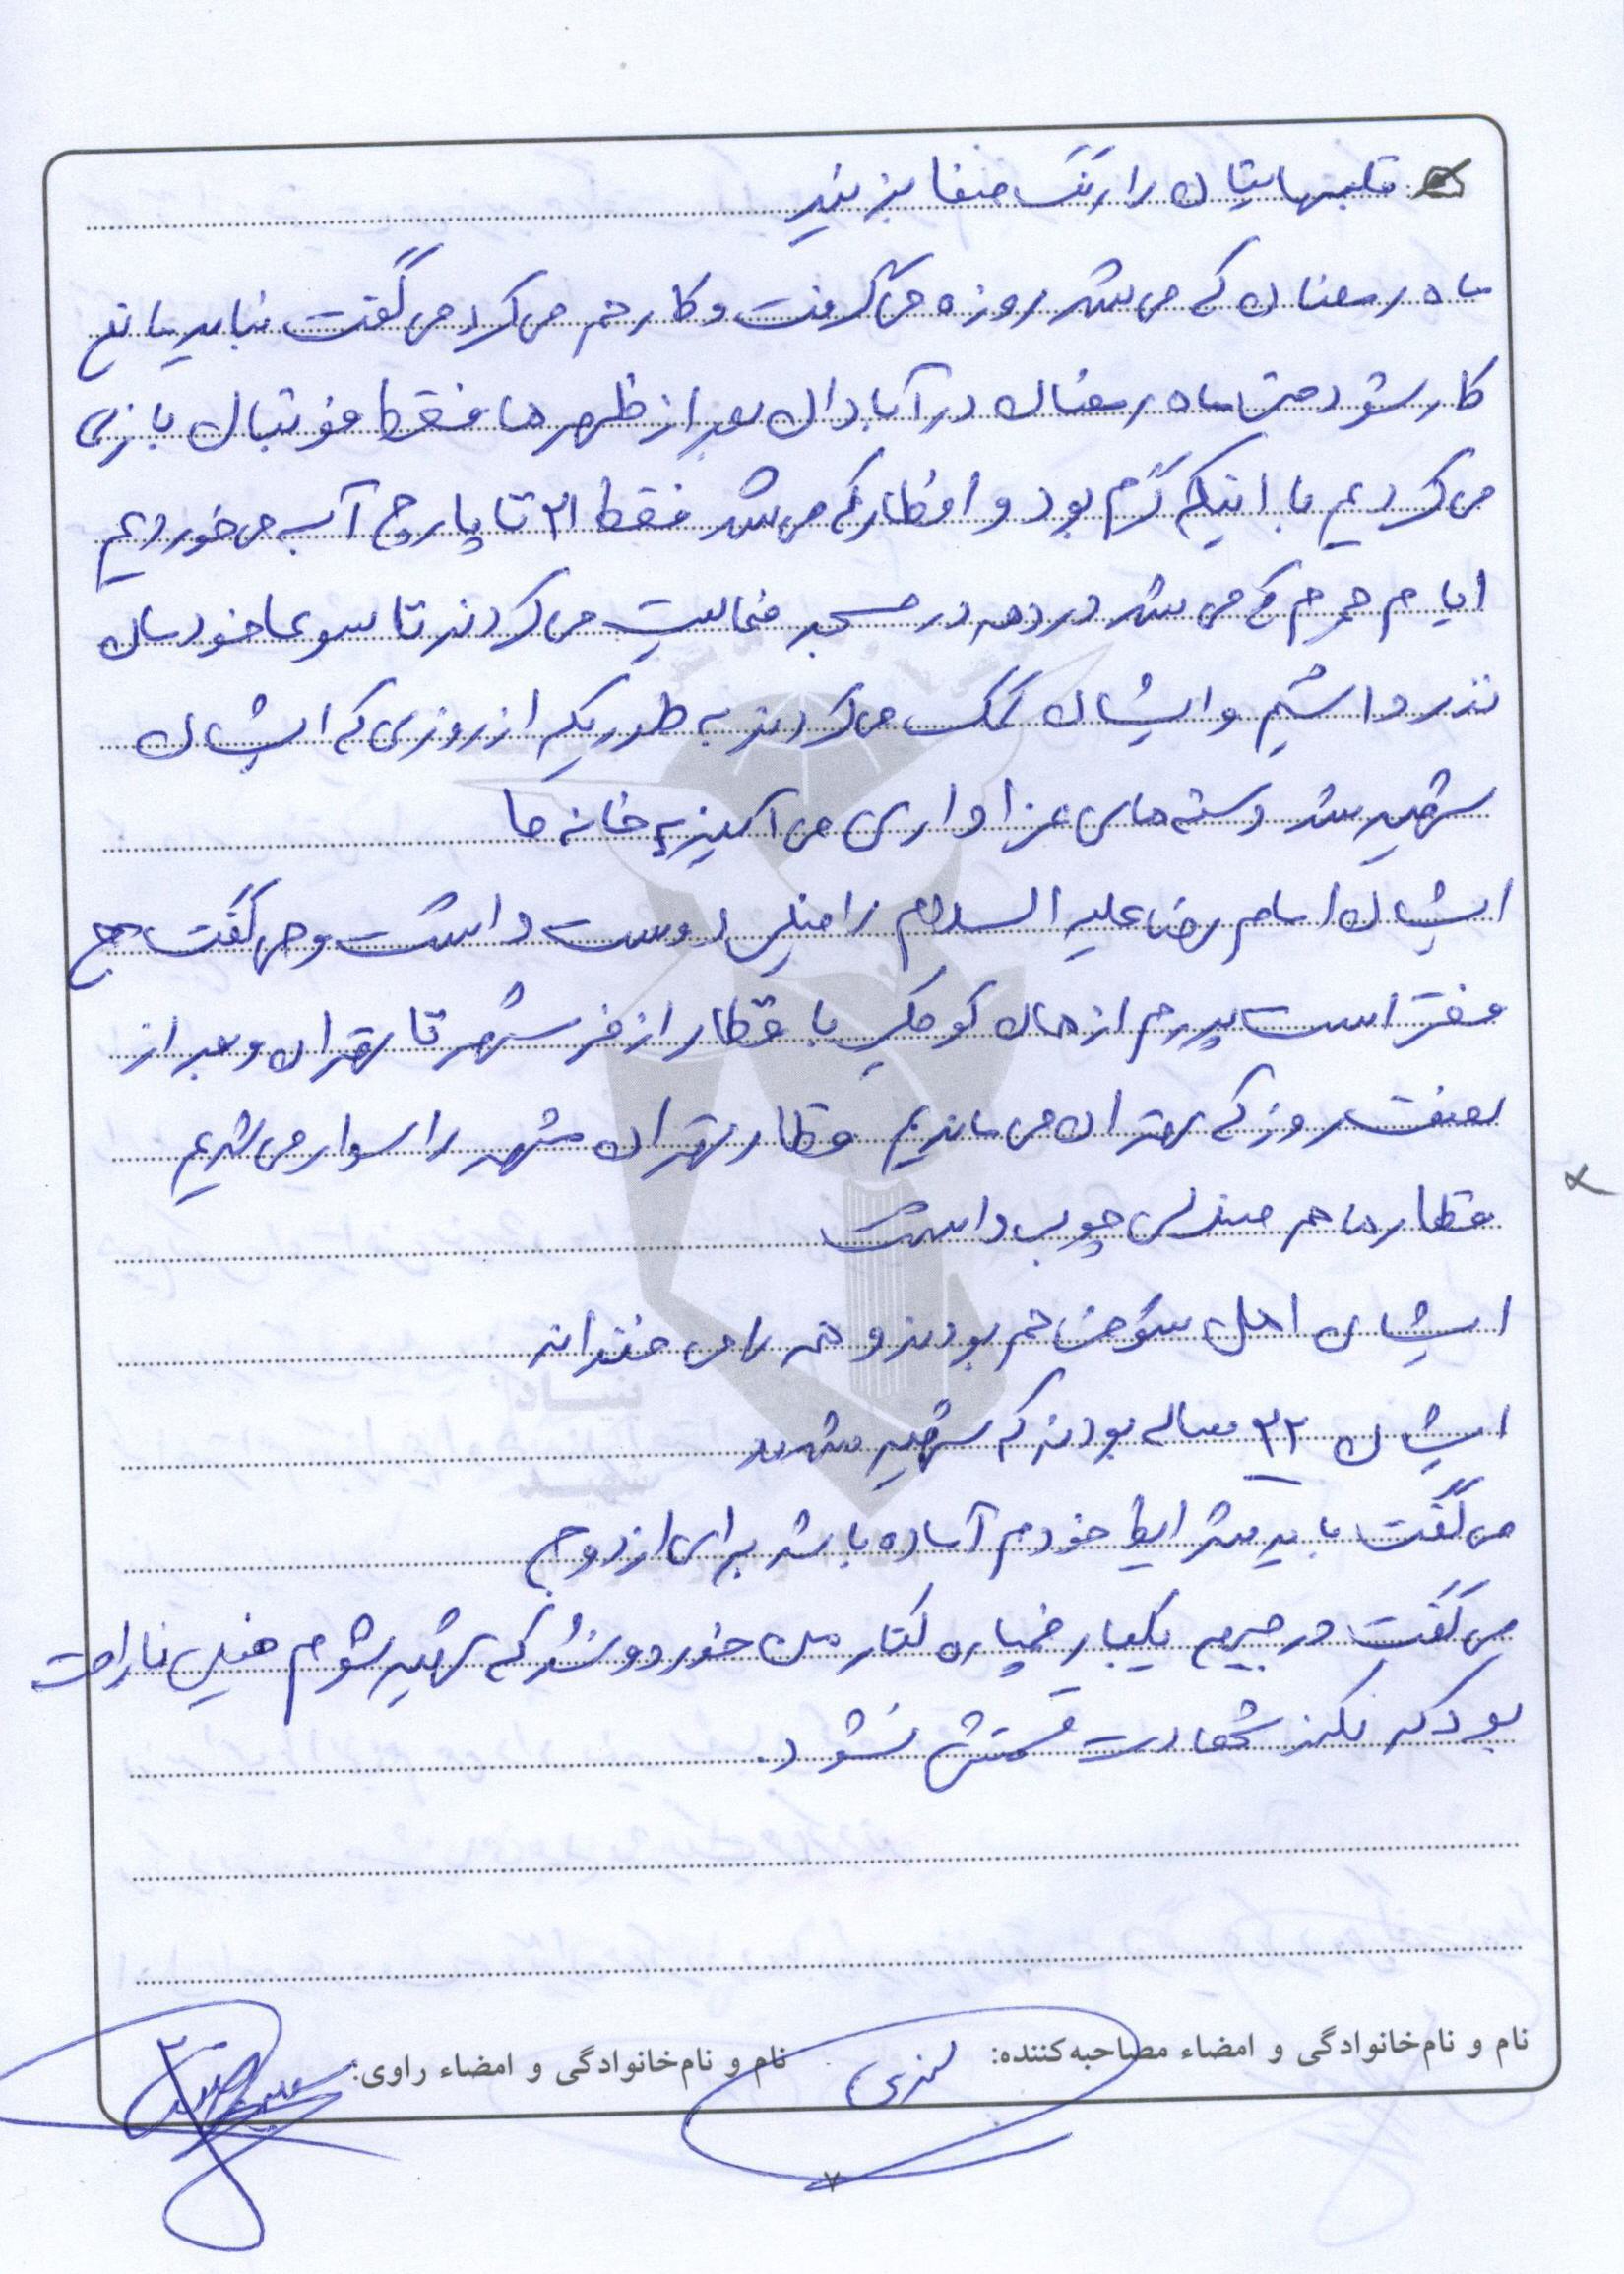 قلبهایتان را رنگ صفا بزنید
ماه رمضان که می شد روزه می گرفت و کار هم می کرد می گفت نباید مانع
کار شود حتی ماه رمضان در آبادان بعد از ظهر ها فقط فوتبال بازی
می کردیم با اینکه گرم بود و افطار که می شد فقط ۲۱ تا پارچ آب می خوردیم
ایام محرم که می شد در دهه در مسجد فعالیت می کردند تاسوعا خودمان
نذر داشتیم و ایشان کمک می کردند به طوریکه از روزی که ایشان
شهید شد دسته های عزاداری می آیند به خانه ما
ایشان امام رضا علیه السلام را خیلی دوست داشت و می گفت حج
فقرا است پدرم از همان کوچکی با قطار از خرمشهر تا تهران و بعد از
هفت روز که تهران می ماندیم قطار تهران مشهد را سوار می شدیم
قطار ها هم صندلی چوبی داشت
ایشان اهل شوخی هم بودند و همه را می خنداند
ایشان ۲۲ ساله بودند که شهید شدند
می گفت باید شرایط خودم آماده باشد برای ازدواج
می گفت در جبهه یکبار خمپاره کنار من خورد و نشد که شهید شوم خیلی ناراحت
بود که نکند شهادت قسمتش نشود.
نام و نام‌خانوادگی و امضاء مصاحبه‌کننده:
نام و نام‌خانوادگی و امضاء راوی:
۷
بنیاد
شهید